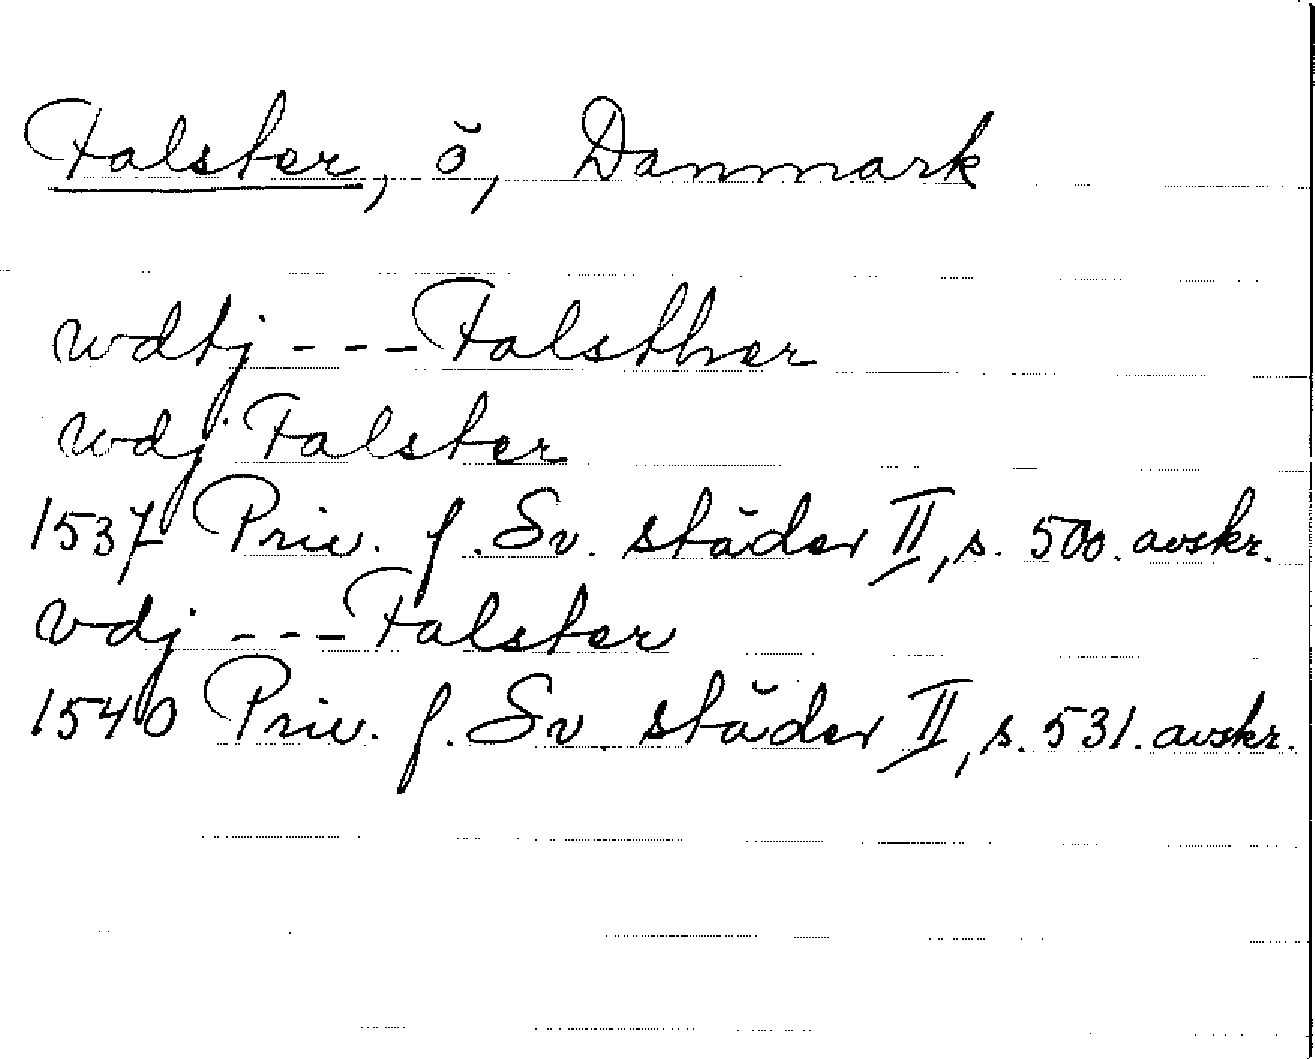 Falster, ö, Danmark
wdtj --- Falsther
wdj Falster
1537 Priv. f. Sv. städer II, s. 500. avskr.
vdj --- Falster
1540 Priv. f. Sv. städer II, s. 531. avskr.